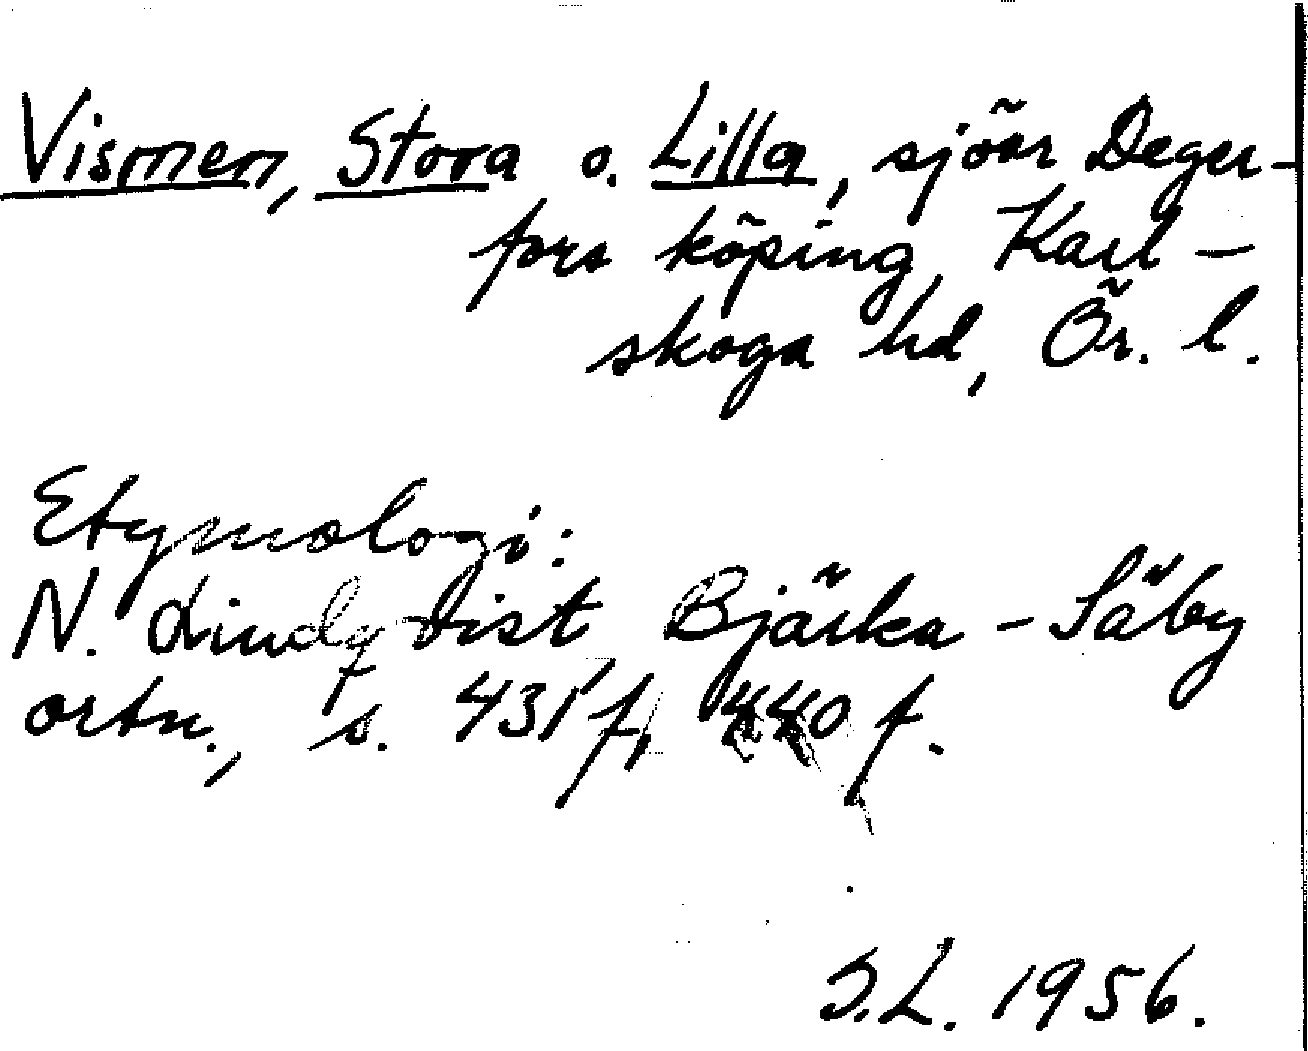 Vismen, Stora o. Lilla, sjöar Deger-
fors köping, Karl-
skoga hd, Ör. l.
Etymologi:
N. Lindqvist Bjärka-Säby
ortn., s. 431 f, 440 f.
S.L. 1956.